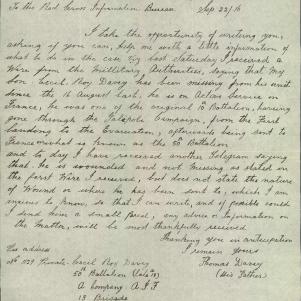 To the Red Cross Information Bureau Sep 22/16
I take the opportunity of writing you,
asking if you can, help me with a little information of
what to do in the case of my last Saturday I received a
Wire from the Millitary Authorities, saying that My
Son Cecil Roy Davey has been missing from his unit
since the 16 August last, he is on Active Service in
France, he was one of the original 10 Battalion, having
gone through the Campaign, from the First
landing to the Evacuation, afterwards being sent to
France what is known as the 50 Battalion
and to day I have received another Telegram saying
that he is wounded and not Missing as stated in
the first Wire I received, but does not state the nature
of Wound or where he has been sent to, which I am
anxious to know, so that I can write, and if possible could
I send him a small parcel, any advice or information on
the Matter, will be most thankfully received
Thanking you in anticipation
I remain Yours
His address Thomas Davey
Private Cecil Roy Davey (His Father)
50 Battalion (late 10)
A Company A.I.F
13 Brigade